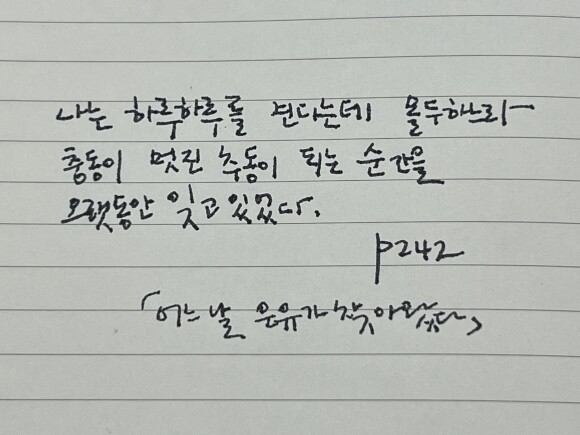 나는 하루하루를 견디는데 몰두하느라
충동이 멋진 추동이 되는 순간을
오랫동안 잊고 있었다.
p242
「어느날 은유가 찾아왔다」